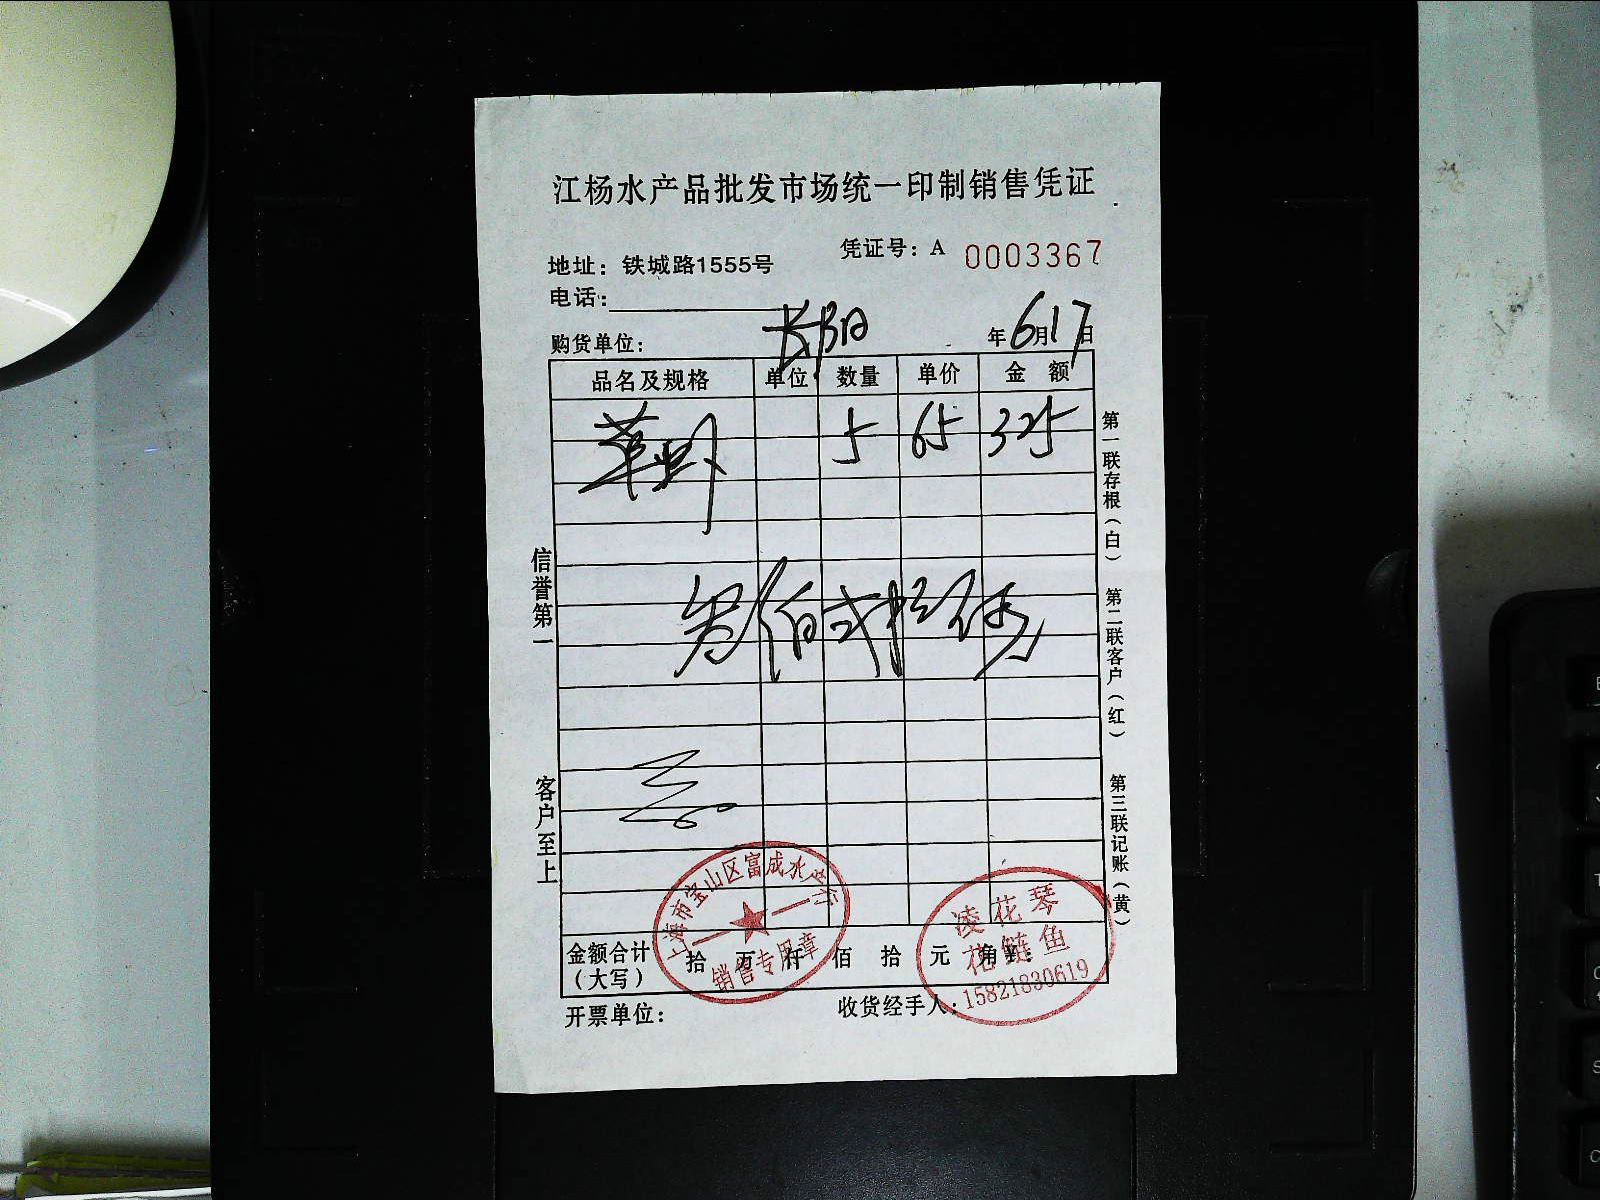 江杨水产品批发市场统一印制销售凭证
凭证号：A 0003367
地址：铁城路1555号
电话：
购货单位：长阳 年6月17日
品名及规格 单位 数量 单价 金额
草虾 5 65 325
叁佰贰拾伍
信誉第一
客户至上
第一联存根（白）
第二联客户（红）
第三联记账（黄）
金额合计（大写） 拾 万 仟 佰 拾 元 角
上海市宝山区富成水产行
销售专用章
凌花琴
花鲢鱼
15821830619
开票单位： 收货经手人：